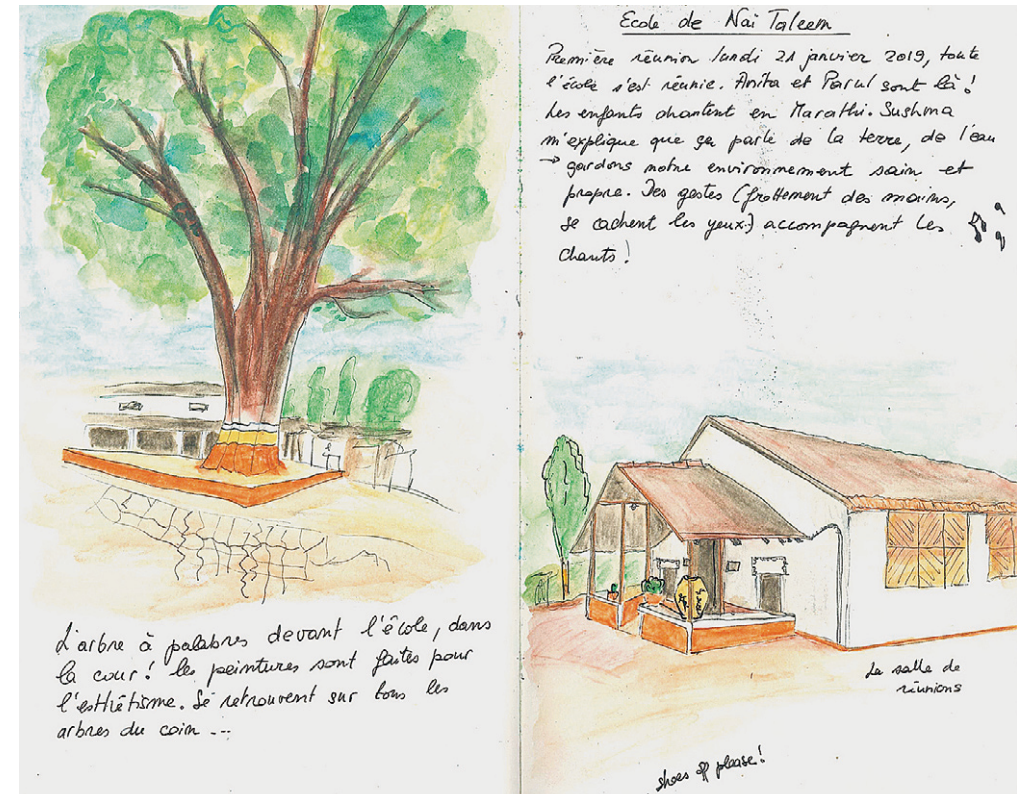 L'arbre à palabres devant l'école, dans
la cour! les peintures sont faites pour
l'esthétisme. Se retrouvent sur tous les
arbres du coin ---
Ecole de Nai Taleem
Première réunion lundi 21 janvier 2019, toute
l'école s'est réunie. Anita et Parul sont là!
Les enfants chantent en Marathi. Sushma
m'explique que ça parle de la terre, de l'eau
→ gardons notre environnement sain et
propre. Des gestes (frottement des mains,
se cachent les yeux:) accompagnent les
chants!
La salle de
réunions
shoes off please!